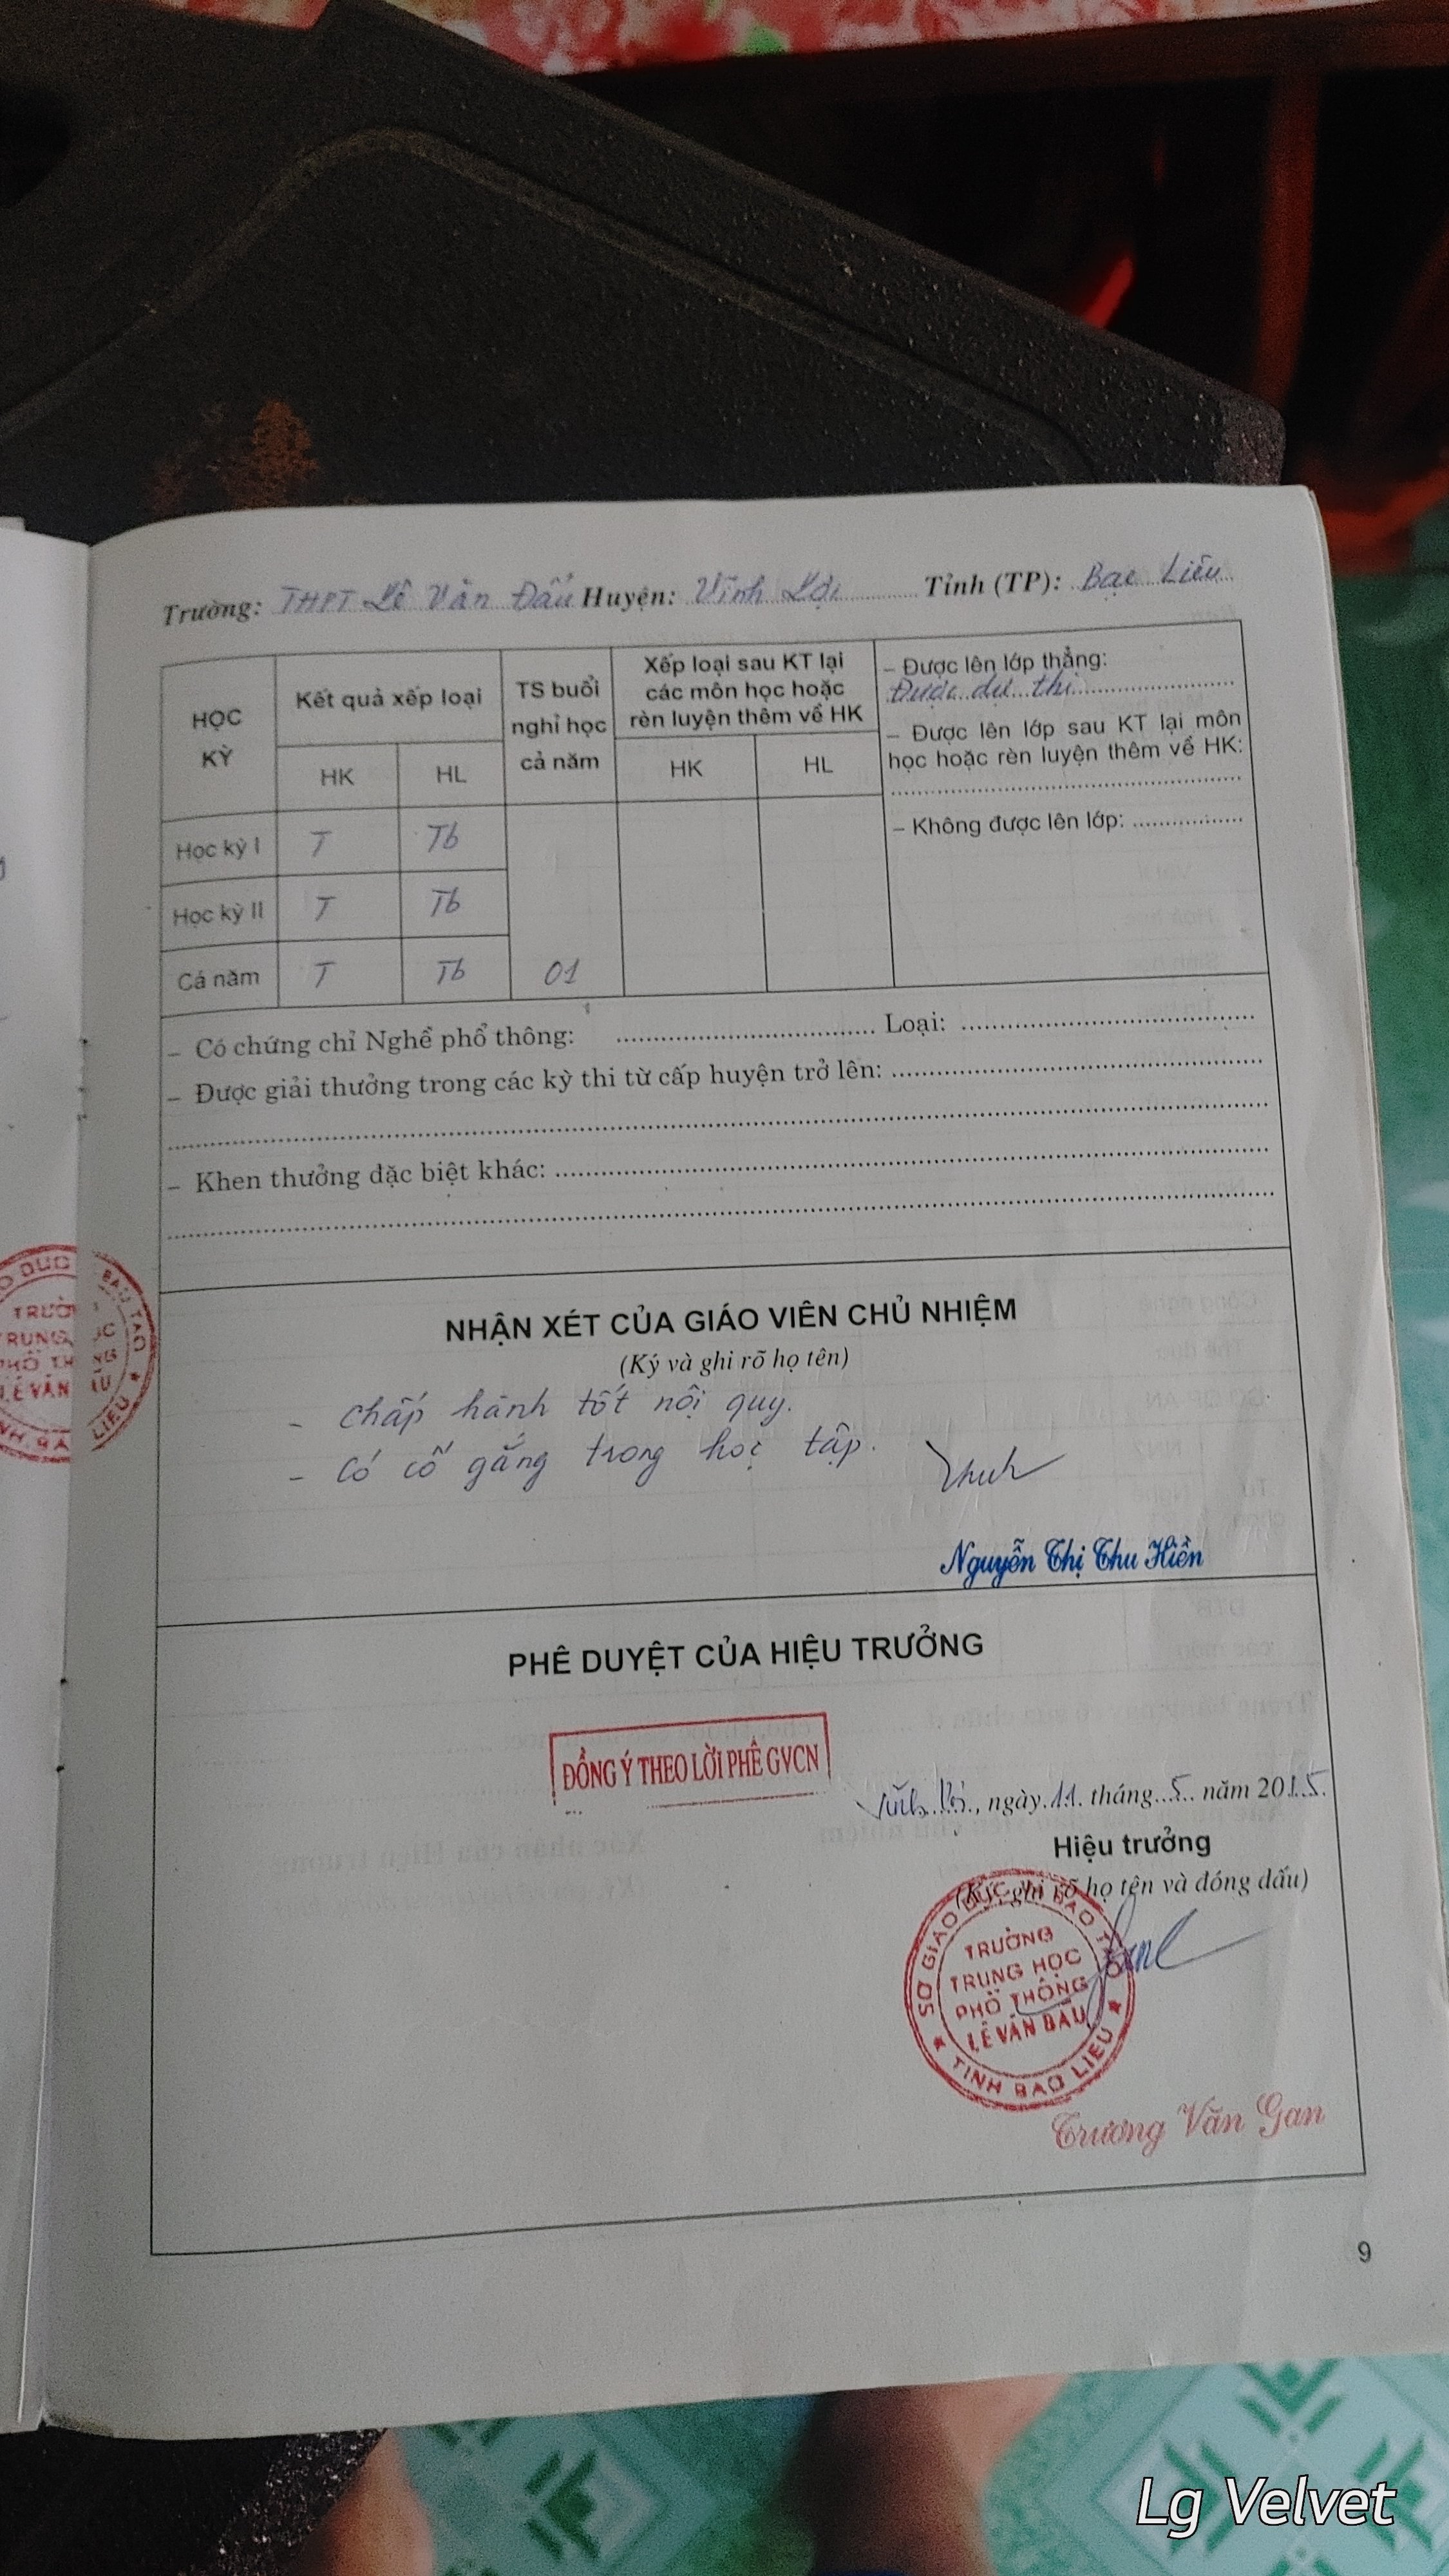 Trường: THPT Lê Văn Đẩu Huyện: Vĩnh Lợi Tỉnh (TP): Bạc Liêu
HỌC KỲ
Kết quả xếp loại
HK HL
TS buổi nghỉ học cả năm
Xếp loại sau KT lại
các môn học hoặc
rèn luyện thêm về HK
HK HL
– Được lên lớp thẳng:
Được dự thi
– Được lên lớp sau KT lại môn
học hoặc rèn luyện thêm về HK:
– Không được lên lớp:
Học kỳ I T Tb
Học kỳ II T Tb
Cả năm T Tb 01
– Có chứng chỉ Nghề phổ thông: Loại:
– Được giải thưởng trong các kỳ thi từ cấp huyện trở lên:
– Khen thưởng đặc biệt khác:
NHẬN XÉT CỦA GIÁO VIÊN CHỦ NHIỆM
(Ký và ghi rõ họ tên)
- Chấp hành tốt nội quy.
- Có cố gắng trong học tập.
Nguyễn Thị Thu Hiền
PHÊ DUYỆT CỦA HIỆU TRƯỞNG
ĐỒNG Ý THEO LỜI PHÊ GVCN
Vĩnh Lợi, ngày 11 tháng 5 năm 2015
Hiệu trưởng
(Ký, ghi rõ họ tên và đóng dấu)
SỞ GIÁO DỤC VÀ ĐÀO TẠO
TRƯỜNG
TRUNG HỌC
PHỔ THÔNG
LÊ VĂN ĐẨU
TỈNH BẠC LIÊU
Trương Văn Gan
9
Lg Velvet